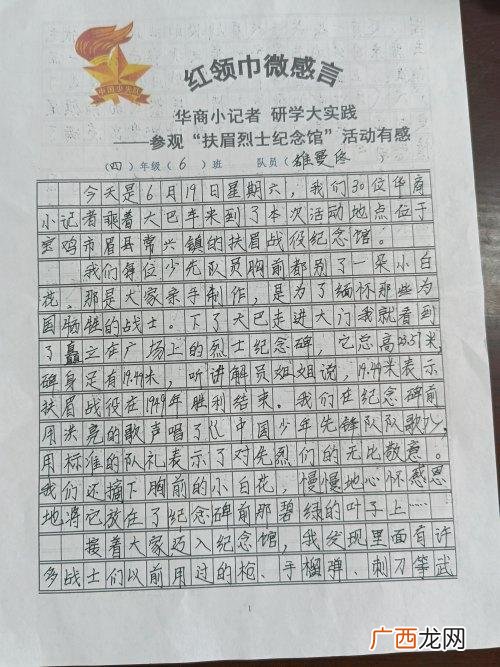 中国少先队
红领巾微感言
华商小记者 研学大实践
——参观“扶眉烈士纪念馆”活动有感
（四）年级（6）班 队员（雒曼 ）
今天是6月19日星期六，我们30位华商
小记者乘着大巴车来到了本次活动地点位于
宝鸡市眉县常兴镇的扶眉战役纪念馆。
我们每位少先队员胸前都别了一朵小白
花，那是大家亲手制作，是为了缅怀那些为
国牺牲的战士。下了大巴走进大门我就看到
了矗立在广场上的烈士纪念碑，它总高23.57米，
碑身足有19.49米，听讲解员姐姐说，19.49米表示
扶眉战役在1949年胜利结束。我们在纪念碑前
用洪亮的歌声唱了《中国少年先锋队队歌》，
用标准的队礼表示了对先烈们的无比敬意。
我们还摘下胸前的小白花，慢慢地心怀感恩
地将它放在了纪念碑前那碧绿的叶子上……
接着大家迈入纪念馆，我发现里面有许
多战士们以前用过的枪、手榴弹、刺刀等武
1
广西龙网